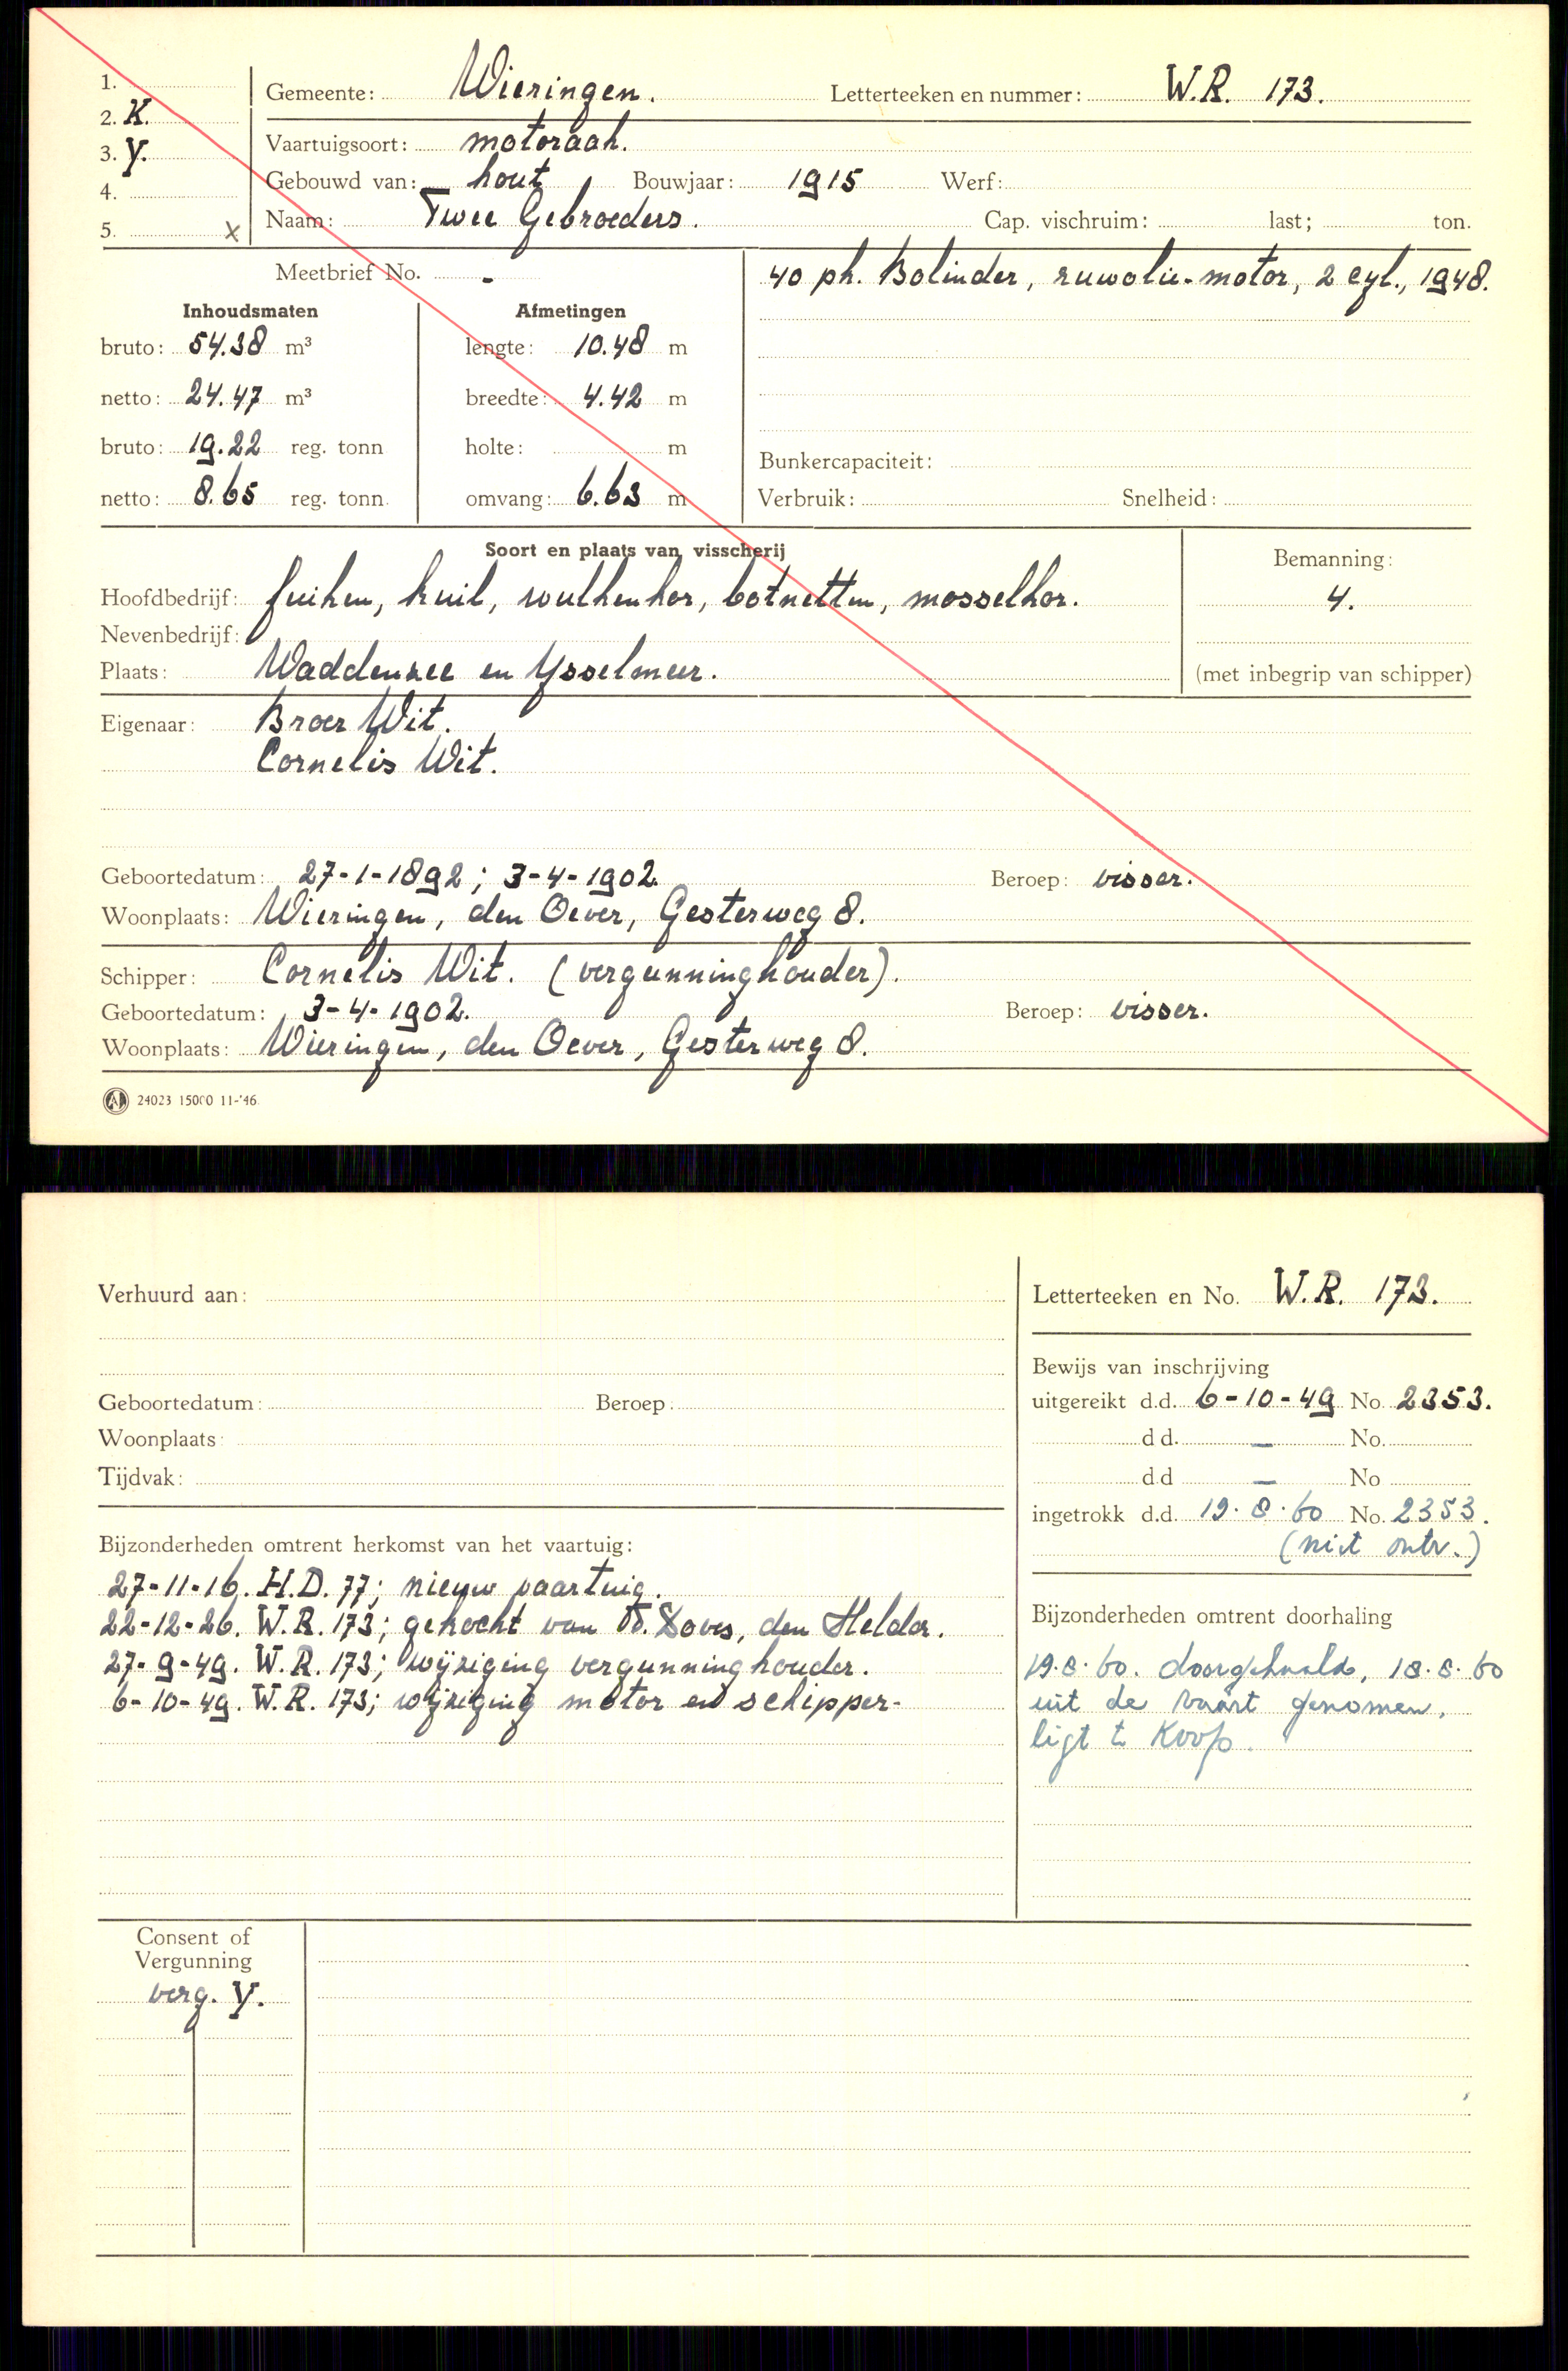 1.
2. K.
3. Y.
4.
5. x
Gemeente: Wieringen. Letterteeken en nummer: W.R. 173.
Vaartuigsoort: motoraak.
Gebouwd van: hout Bouwjaar: 1915 Werf:
Naam: Twee Gebroeders. Cap. vischruim: last; ton.
Meetbrief No. -
Inhoudsmaten
bruto: 54.38 m³
netto: 24.47 m³
bruto: 19.22 reg. tonn
netto: 8.65 reg. tonn.
Afmetingen
lengte: 10.48 m
breedte: 4.42 m
holte: m
omvang: 6.63 m
40 pk. Bolinder, ruwolie-motor, 2 cyl., 1948.
Bunkercapaciteit:
Verbruik: Snelheid:
Soort en plaats van visscherij
Hoofdbedrijf: fuiken, kuil, wulkenkor, botnetten, mosselkor.
Nevenbedrijf:
Plaats: Waddenzee en Ysselmeer.
Bemanning:
4.
(met inbegrip van schipper)
Eigenaar: Broer Wit.
Cornelis Wit.
Geboortedatum: 27-1-1892; 3-4-1902. Beroep: visser.
Woonplaats: Wieringen, den Oever, Gesterweg 8.
Schipper: Cornelis Wit. (vergunninghouder).
Geboortedatum: 3-4-1902. Beroep: visser.
Woonplaats: Wieringen, den Oever, Gesterweg 8.
24023 15000 11-'46
Verhuurd aan:
Geboortedatum: Beroep:
Woonplaats:
Tijdvak:
Letterteeken en No. W.R. 173.
Bewijs van inschrijving
uitgereikt d.d. 6-10-49 No. 2353.
d d. — No.
d d — No
ingetrokk d.d. 19.8.60 No. 2353.
(niet ontv.)
Bijzonderheden omtrent herkomst van het vaartuig:
27-11-16. H.D. 77; nieuw vaartuig.
22-12-26. W.R. 173; gekocht van den Helder.
27-9-49. W.R. 173; wijziging vergunninghouder.
6-10-49. W.R. 173; wijziging motor en schipper-
Bijzonderheden omtrent doorhaling
19.8.60. doorgehaald, 18.8.60
uit de vaart genomen,
ligt te koop.
Consent of
Vergunning
verg. Y.